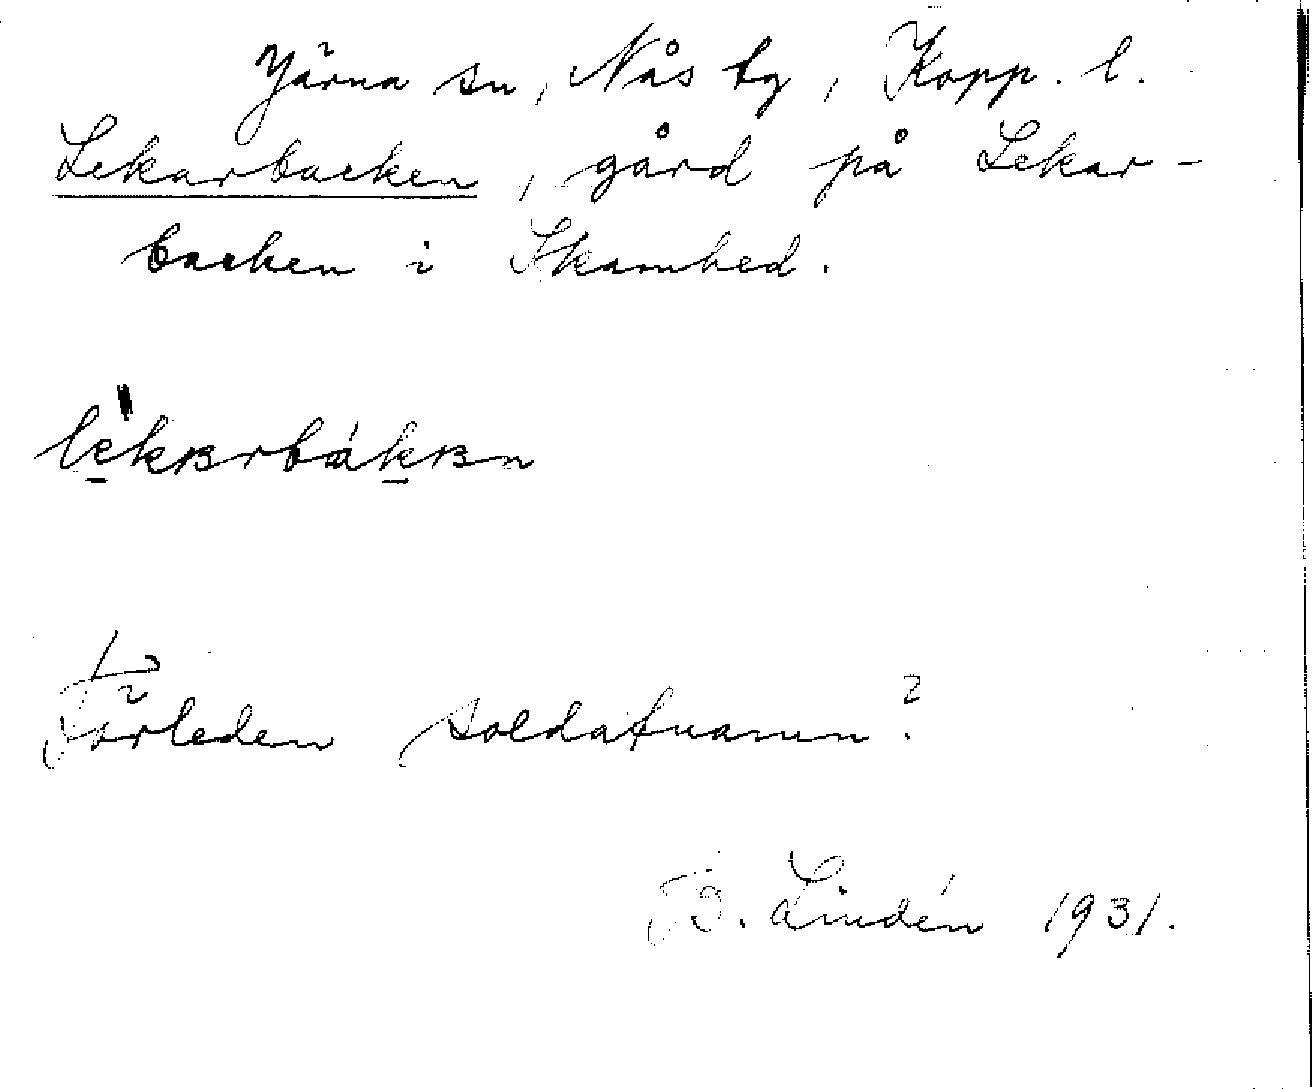 Järna sn, Nås tg, Kopp. l.
Lekarbacken, gård på Lekar-
backen i Skamhed.
lèkʙrbákʙn
Förleden soldatnamn?
B. Lindén 1931.